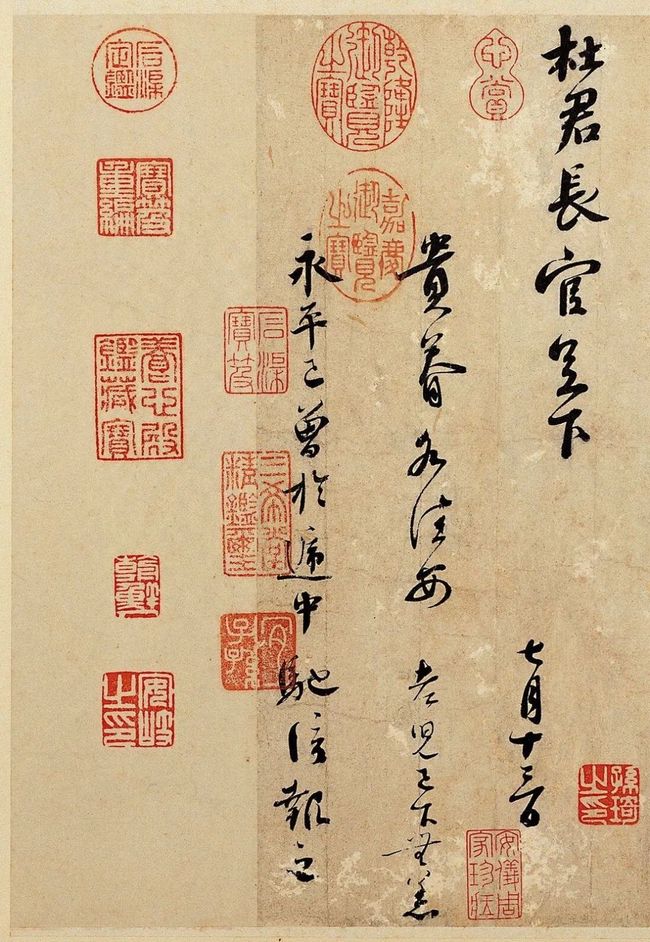 杜君長官足下
七月十三日
貴眷各佳安 老兒已下無恙
永平已曾於遞中馳信報之
乾隆御覽之寶
嘉慶御覽之寶
安儀周家珍藏
石渠寶笈
三希堂精鑑璽
宜子孫
石渠定鑑
寶笈重編
養心殿鑑藏寶
朝鮮
安岐之印